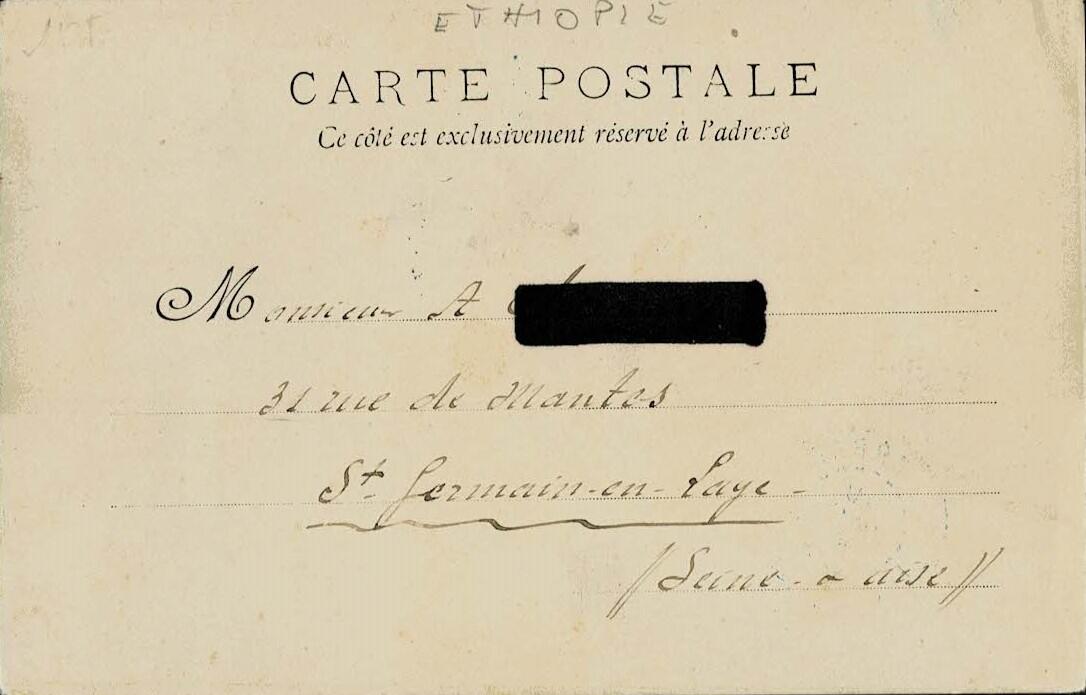 ETHIOPIE
CARTE POSTALE
Ce côté est exclusivement réservé à l'adresse
Monsieur A
31 rue de Mantes
St Germain-en-Laye -
(Seine-o-oise)